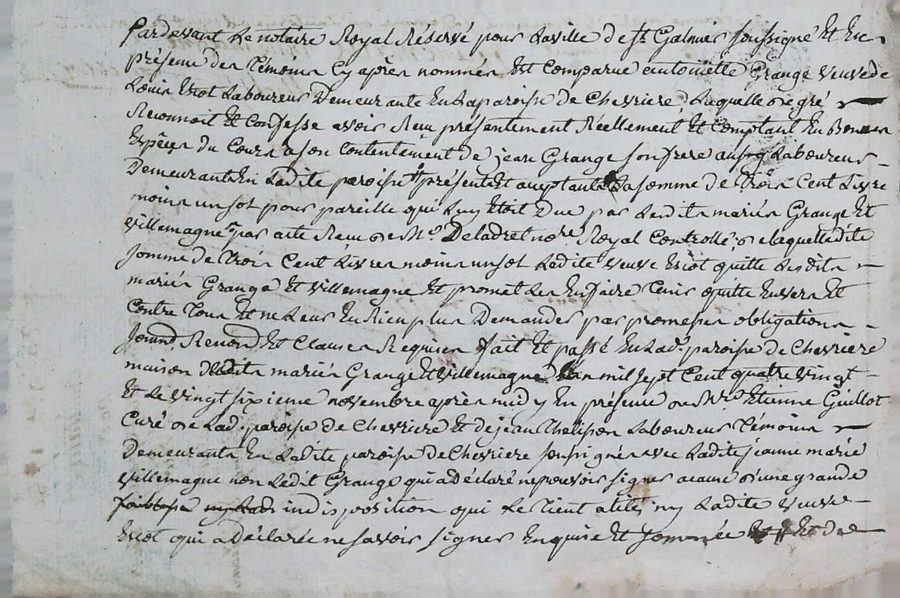 Pardevant le notaire Royal Réservé pour la ville de st Galmier soussigné et en
présence des témoins cy après nommés est comparue antoinette Grange veuve de
Louis Eriot Laboureur Demeurante en la paroisse de Chevriere, Laquelle de gré
Reconnoit et confesse avoir Reçu présentement Réellement et comptant en Bonnes
Espèces du Cours a son contentement de jean Grange son frere aussy Laboureur
Demeurant en Ladite paroisse présent et acceptant La somme de trois Cent Livre
moins un sol pour pareille qui Luy étoit Due par Lesdits mariés Grange Et
villemagne par acte Reçu de Me Deladret nore Royal Controllé, de laquelle dite
somme de trois Cent Livres moins un sol Ladite veuve Eriot quitte Lesdits
mariés Grange Et villemagne et promet Les En faire tenir quitte Envers Et
Contre tous Et ne Leur En Rien plus Demander par promesses obligations
Renond Et Clauses Requises fait Et passé En Lad. paroisse de Chevriere
maison Desdits mariés Grange Et villemagne L'an mil sept Cent quatre vingt
Et Le vingt sixieme novembre après midy En présence de Mre Etienne Guillot
Curé de Lad. paroisse de Chevriere Et de jean Thelisson Laboureur témoins
Demeurants En Ladite paroisse de Chevriere soussignés avec Ladite jeanne marie
villemagne non Ledit Grange qui a Déclaré ne pouvoir signer a cause d'une grande
indisposition qui Le tient alité, ny Ladite veuve
Eriot qui a déclarée ne savoir signer Enquise Et sommée Et de